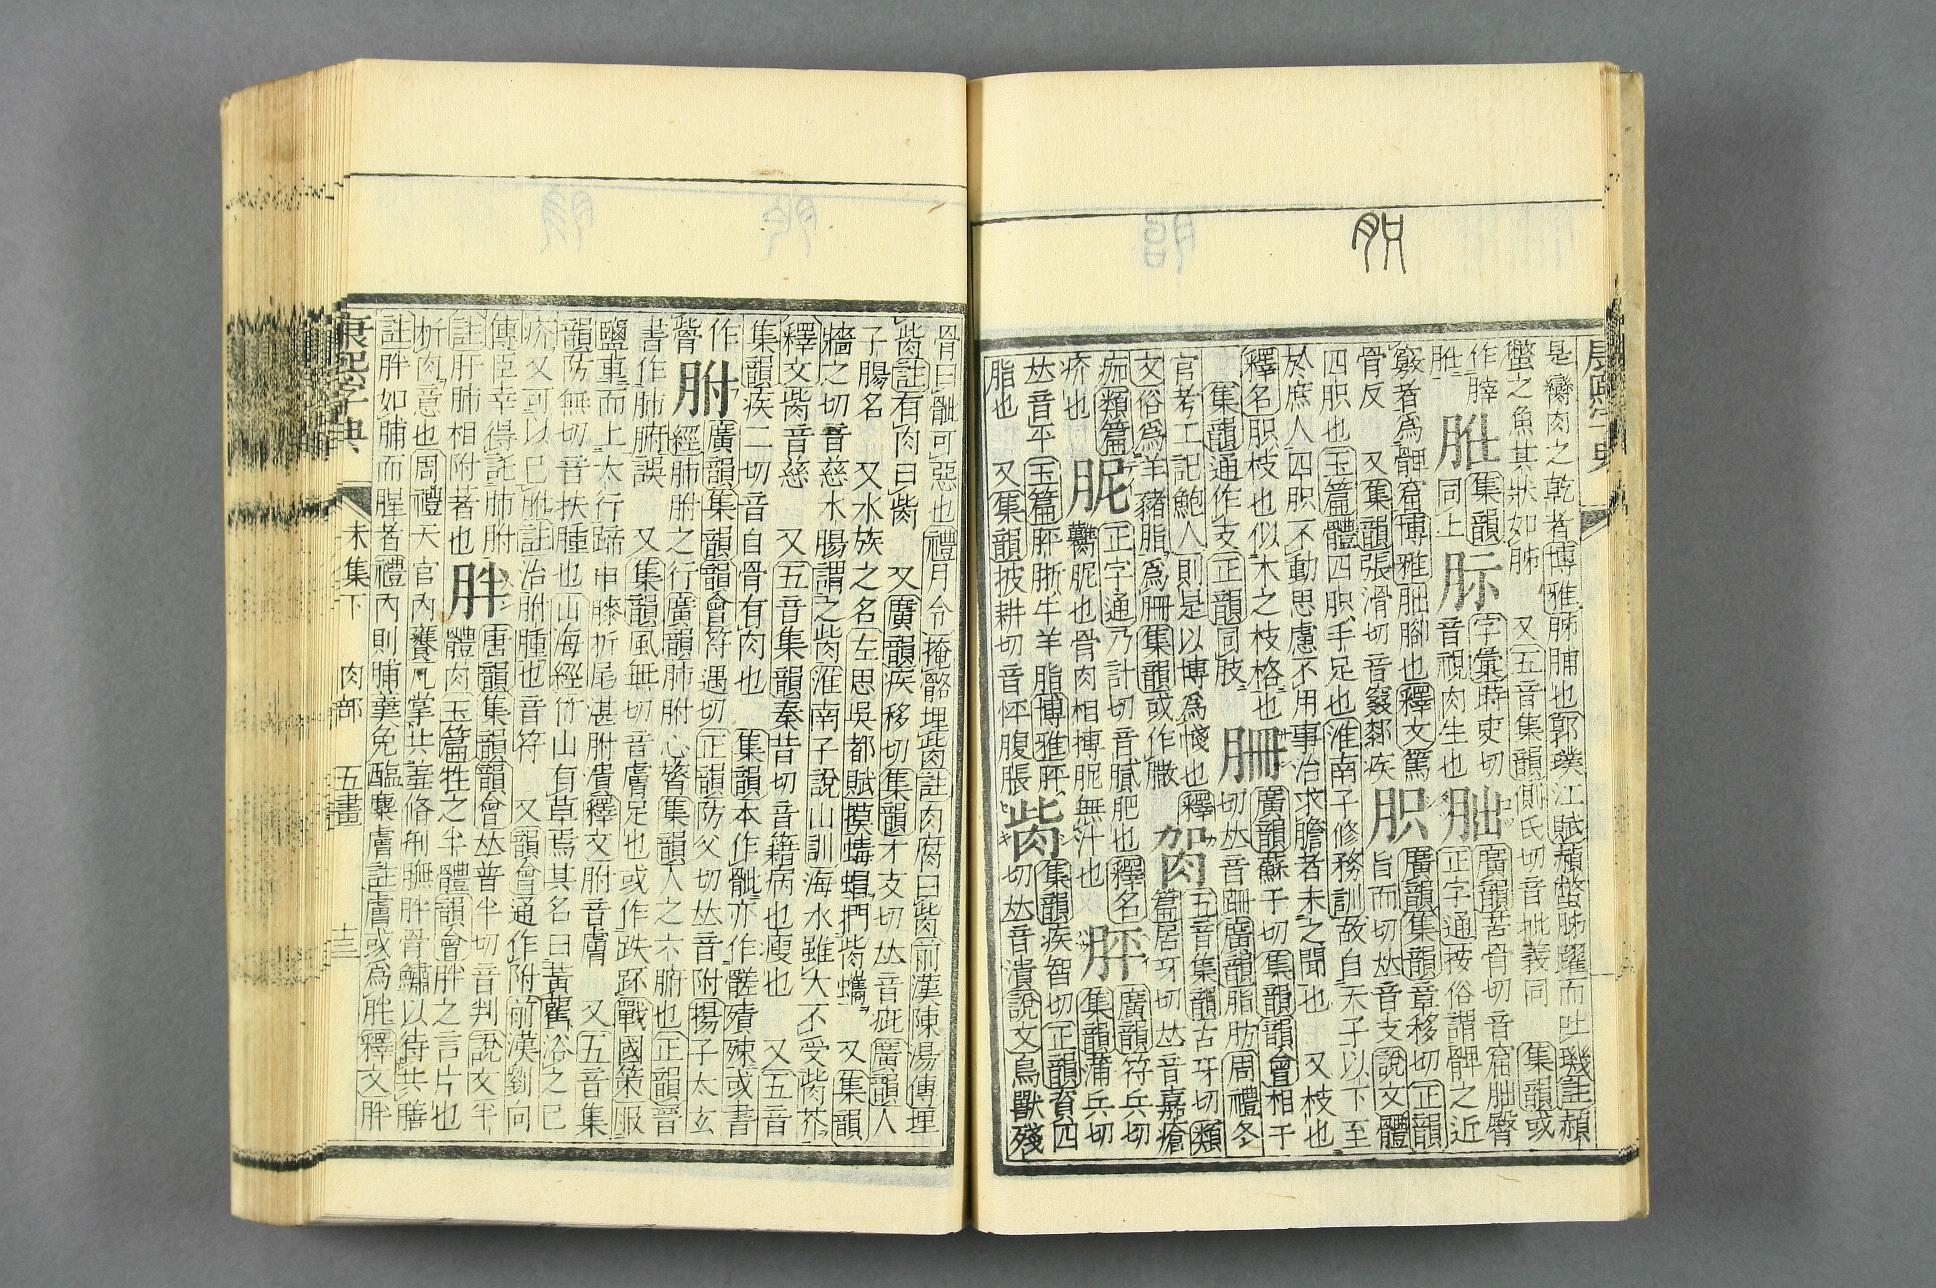 是臠肉之乾者博雅胏脯也郭璞江賦䫌蟞胏躍而吐璣註䫌
蟞之魚其狀如胏 又五音集韻側氏切音批義同 集韻或
作
胜
胜
集韻
同上
字彙時吏切
音視肉生也
朏
廣韻苦骨切音窟朏臀
正字通按俗謂髀之近
竅者為髀窟博雅朏腳也釋文篤
骨反 又集韻張滑切音窡疾
胑
廣韻集韻章移切正韻
旨而切𠀤音支說文體
四胑也玉篇體四胑手足也淮南子修務訓故自天子以下至
於庶人四胑不動思慮不用事治求膽者未之聞也 又枝也
釋名胑枝也似木之枝格也
集韻通作支正韻同肢
廣韻蘇干切集韻韻會相干
切𠀤音跚廣韻脂肪周禮冬
官考工記鮑人則是以博為帴也釋
文俗為羊豬脂為集韻或作
五音集韻古牙切類
篇居牙切𠀤音嘉瘡
痂類篇
疥也
胒
正字通乃計切音膩肥也釋名
臡胒也骨肉相搏胒無汁也
胓
廣韻符兵切
集韻蒲兵切
𠀤音平玉篇胓牛羊脂博雅胓
脂也 又集韻披耕切音怦腹脹
胔
集韻疾智切正韻資四
切𠀤音漬說文鳥獸殘
骨曰骴可惡也禮月令掩骼埋胔註肉腐曰胔前漢陳湯傳埋
胔註有肉曰胔 又廣韻疾移切集韻才支切𠀤音疵廣韻人
子腸名 又水族之名左思吳都賦摸蝳蝐捫胔蠵 又集韻
牆之切音慈水腸謂之胔淮南子說山訓海水雖大不受胔芥
釋文胔音慈 又五音集韻秦昔切音籍病也瘦也 又五音
集韻疾二切音自骨有肉也 集韻本作骴亦作髊㱴殐或書
作
胔
胕
廣韻集韻韻會符遇切正韻防父切𠀤音附揚子太玄
經肺胕之行廣韻肺胕心膂集韻人之六腑也正韻晉
書作肺腑誤 又集韻風無切音膚足也或作趺䟮戰國策服
鹽車而上太行蹄申膝折尾湛胕潰釋文胕音膚 又五音集
韻防無切音扶腫也山海經竹山有草焉其名曰黃雚浴之已
疥又可以已胕註治胕腫也音符 又韻會通作附前漢劉向
傳臣幸得託肺附
註肝肺相附著也
胖
唐韻集韻韻會𠀤普半切音判說文半
體肉玉篇牲之半體韻會胖之言片也
析肉意也周禮天官內饔凡掌共羞脩刑膴胖骨鱐以待共膳
註胖如脯而腥者禮內則脯羹兔醢麋膚註膚或為胖釋文胖
康熙字典 未集下 肉部 五畫 十三